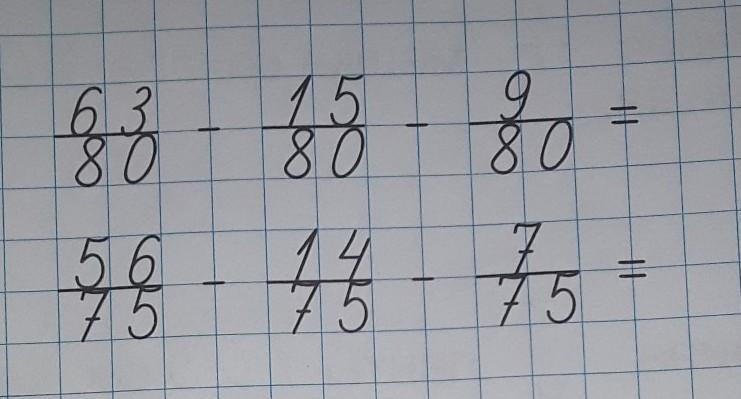 63/80 - 15/80 - 9/80 =
56/75 - 14/75 - 7/75 =